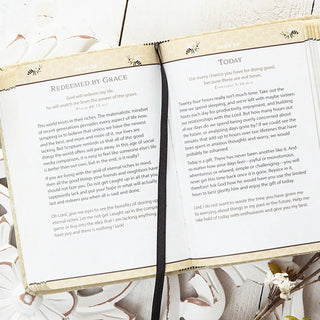 REDEEMED BY GRACE
God will redeem my life;
he will snatch me from the power of the grave.
PSALM 49:15 NLT
This world boasts in their riches. The materialistic mindset
of recent generations pervades every aspect of life now,
tempting us to believe that unless we have the newest
and the best, and more and more of it, our lives are
lacking. But Scripture reminds us that all of the good
things life offers will pass away. In this age of social
media comparison, it is easy to feel like someone else's life
is better than our own, but in the end, is it really?
If you are living with the goal of eternal riches in mind,
then all the good things your friends and neighbors have
should not faze you. Do not get caught up in all that you
supposedly lack and put your hope in what will actually
last and redeem you when all is said and done.
Oh Lord, give me eyes to see the benefits of storing up
eternal riches. Let me not get caught up in the comparison
game or buy into the idea that I am lacking anything. I
have you and there is nothing I lack!
TODAY
Use every chance you have for doing good,
because these are evil times.
EPHESIANS 5:16
Twenty-four hours really isn't much time. Take out the
time we spend sleeping, and we're left with maybe sixteen
hours each day for productivity, enjoyment, and building
our relationships with the Lord. But how many hours out
of our days do we spend being overly concerned about
the future, or analyzing days gone by? If we could see the
minutes that add up to hours over our lifetimes that have
been spent in anxious thoughts and worry, we would
probably be ashamed.
Today is a gift. There has never been another like it. And
no matter how your days feel—joyful or monotonous,
adventurous or relaxed, simple or challenging—you will
never get this time back once it is gone. Rejoice in it,
therefore! Ask God how he would have you use the limited
hours to best glorify him and enjoy the gift of today.
God, I do not want to waste the time you have given me
by worrying about things in my past or the future. Help me
take hold of today with enthusiasm and give you my best.